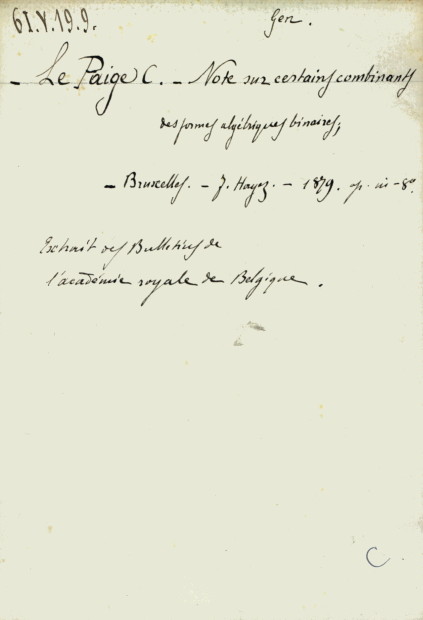 61.V.19.9.
Gen.
- Le Paige C. - Note sur certains combinants
des formes algébriques binaires;
- Bruxelles. - F. Hayez - 1879. op. in-8°.
Extrait des Bulletins de
l'académie royale de Belgique.
C